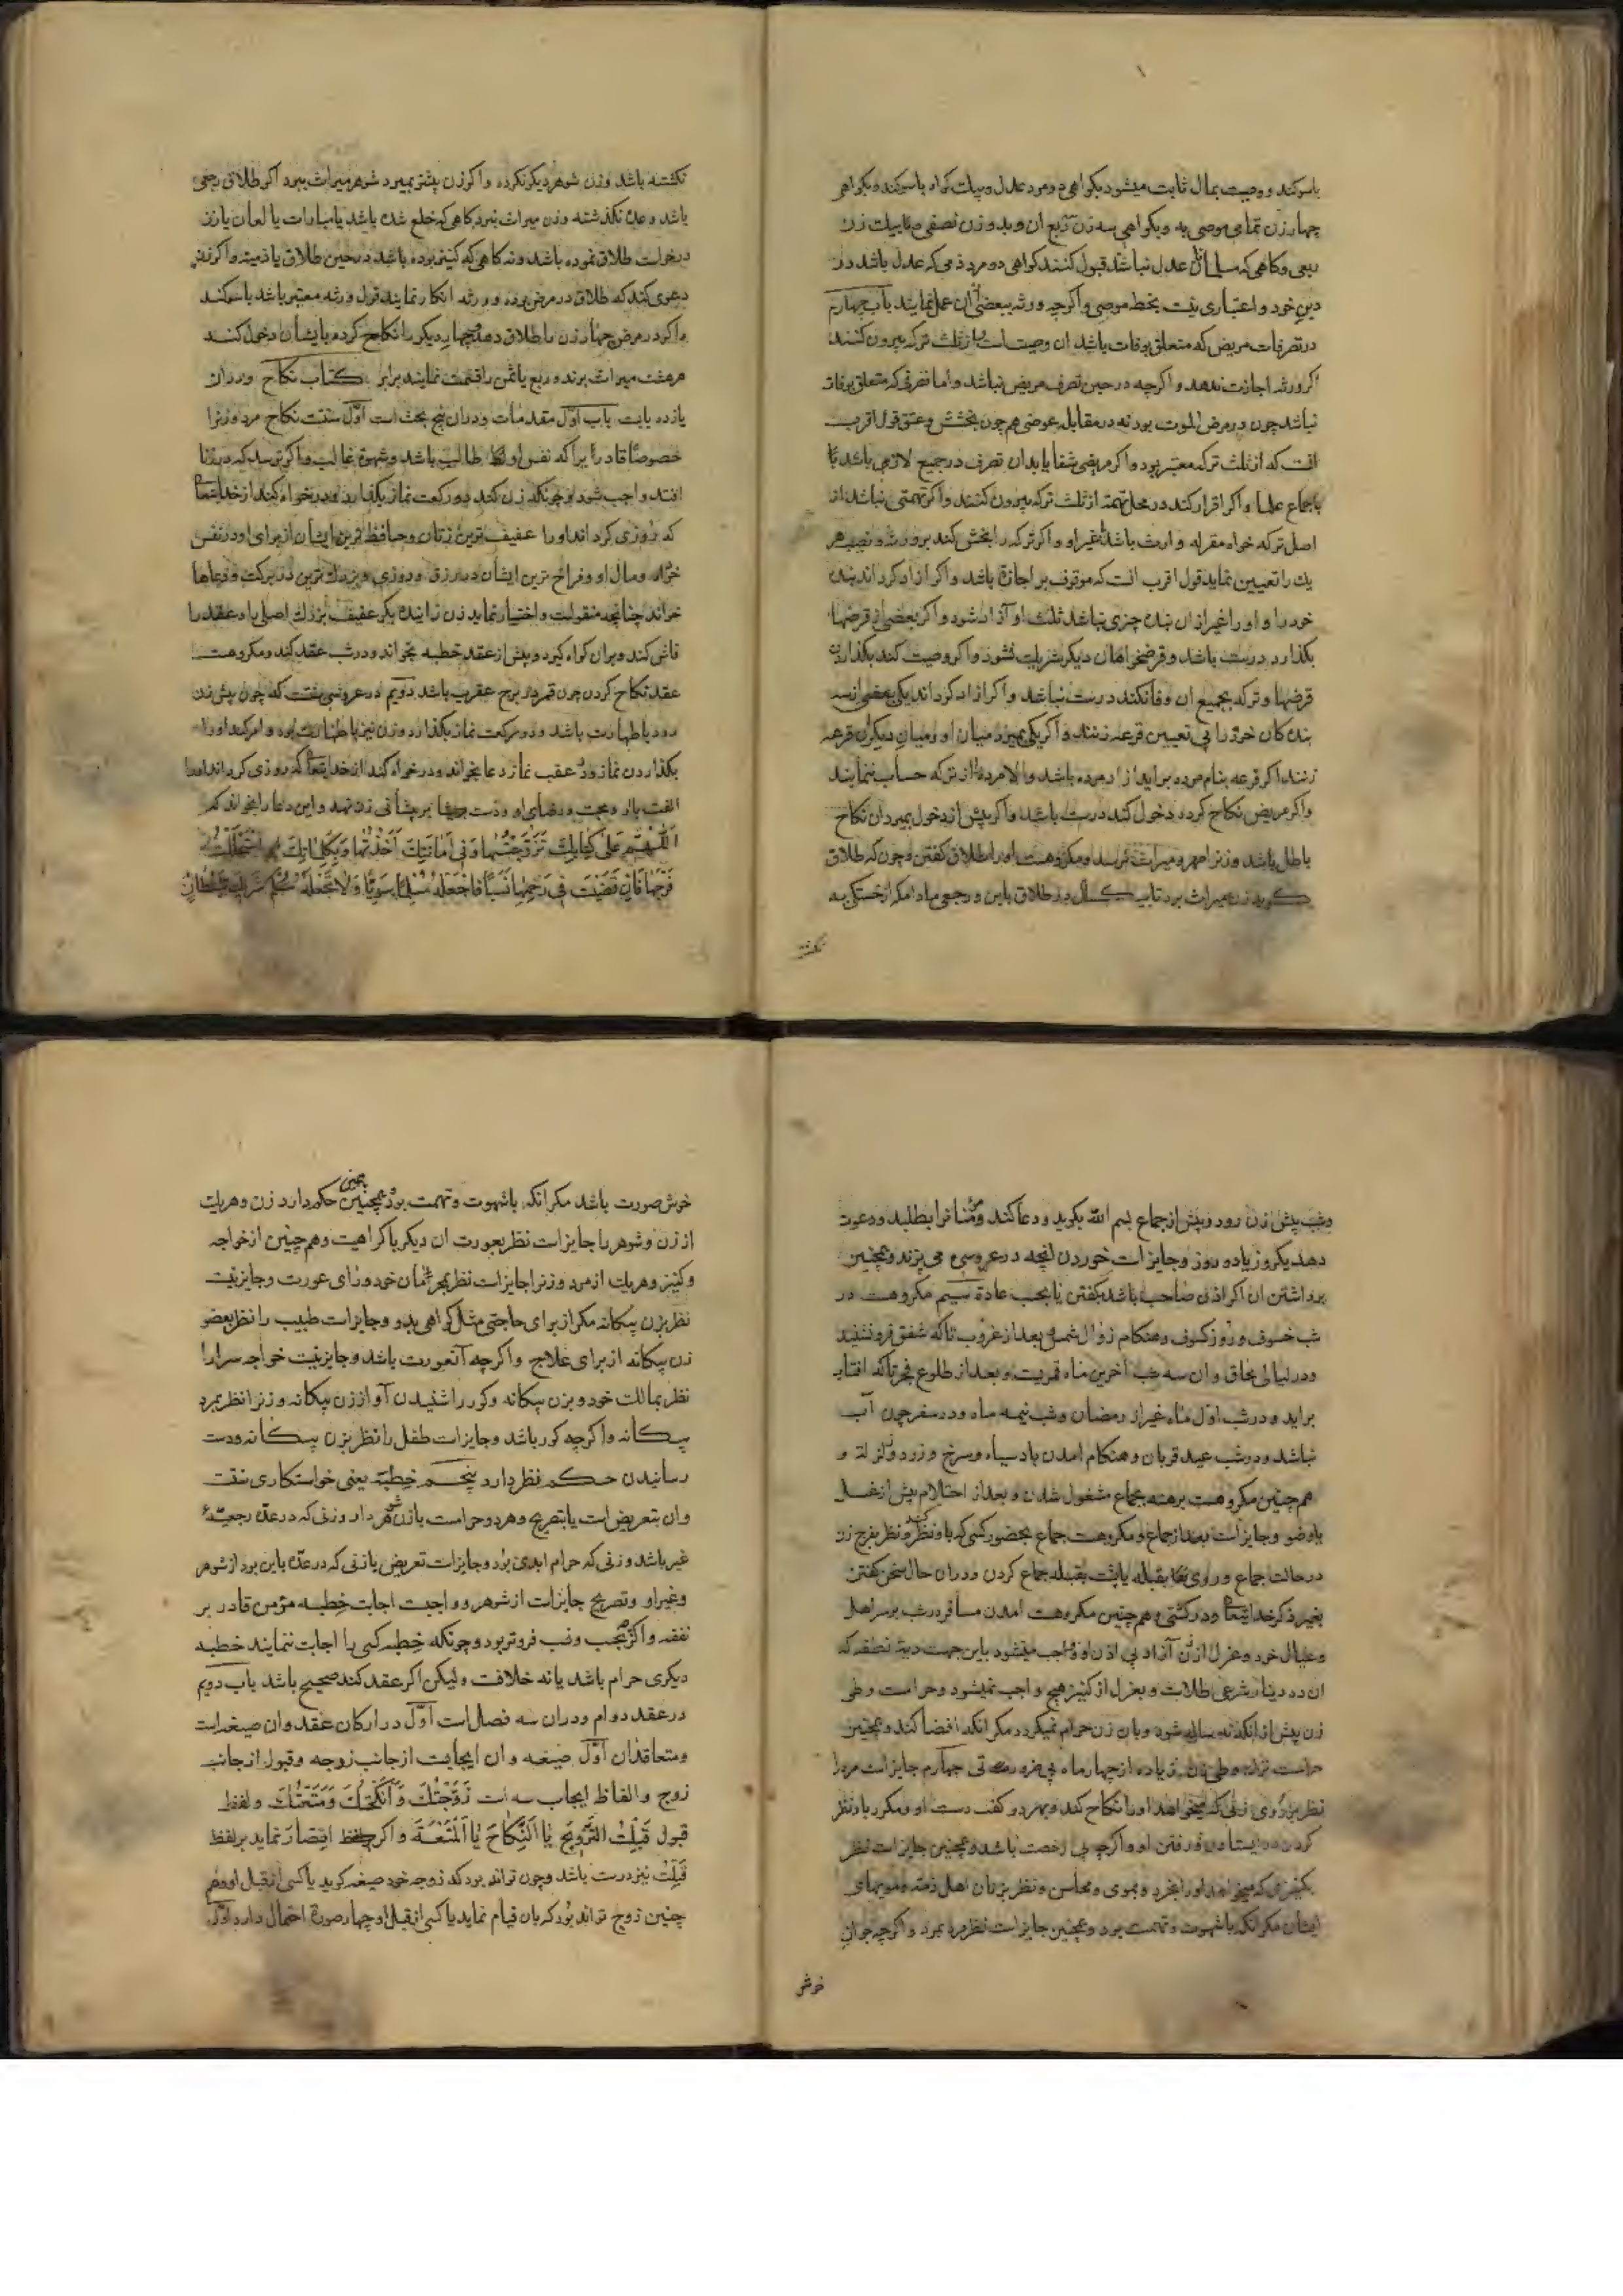 باسوکند و وصیت بمال ثابت میشود بکواهی دو مرد عدل و بیک کواه باسوکند و بکواهی
چهار زن تمامی موصی به و بکواهی سه زن ربع ان و بدو زن نصفی و بیک زن
ربعی و کاهی که مسلمانان عدل نباشند قبول کنند کواهی دو مرد ذمی که عدل باشد در
دین خود و اعتباری نیست بخط موصی و اکرچه ورثه ببعضی ان عمل نمایند باب چهارم
در تصرفات مریض که متعلق بوفات باشد ان وصیت است و از ثلث ترکه بیرون کنند
اکر ورثه اجازت ندهد و اکرچه در حین تصرف مریض نباشد و اما تصرفی که متعلق بوفات
نباشد چون در مرض الموت بود نه در مقابل عوضی هم چون بخشش و عتق قول اقرب
انست که از ثلث ترکه معتبر بود و اکر مریض شفا یابد ان تصرف در جمیع لازم باشد با
باجماع علما و اکر اقرار کند در محل تهمة از ثلث ترکه بیرون کنند و اکر تهمتی نباشد از
اصل ترکه خواه مقر له وارث باشد یا غیر او و اکر ترکه را بخش کند بر ورثه و نصیب هر
یک را تعیین نماید قول اقرب انست که موقوف بر اجازة باشد و اکر ازاد کرداند بنده
خود را و او را غیر از ان بنده چیزی نباشد ثلث او آزاد شود و اکر بعضی از قرضها
بکذارد درست باشد و قرضخواهان دیکر شریک نشوند و اکر وصیت کند بکذاردن
قرضها و ترکه بجمیع ان وفا نکند درست نباشد و اکر ازاد کرداند یکی بعضی از سه
بنده کان خود را بی تعیین قرعه زنند و اکر یکی بمیرد میان او و میان دیکران قرعه
زنند اکر قرعه بنام مرده براید ازاد مرده باشد و الا مرده را از ترکه حساب ننمایند
و اکر مریض نکاح کرده دخول کند درست باشد و اکر پیش از دخول بمیرد ان نکاح
باطل باشد و زنرا مهر و میراث نرسد و مکروهست او را طلاق کفتن و چون که طلاق
کوید زن میراث برد تا یک سال در طلاق باین و رجعی مادامکه از خستکی به
نکشته
نکشته باشد و زن شوهر دیکر نکرده و اکر زن پیشتر بمیرد شوهر میراث ببرد اکر طلاق رجعی
باشد و عدة نکذشته و زن میراث نبرد کاهی که خلع شده باشد یا مبارات یا لعان یا زن
درخواست طلاق نموده باشد و نه کاهی که کنیز بوده باشد در حین طلاق یا ذمیه و اکر زن
دعوی کند که طلاق در مرض بوده و ورثه انکار نمایند قول ورثه معتبر باشد باسوکند
و اکر در مرض چهار زن را طلاق دهد و چهار دیکر را نکاح کرده با ایشان دخول کند
هر هشت میراث برند و ربع یا ثمن را قسمت نمایند برابر کتاب نکاح و در ان
یازده بابست باب اول مقدمات و در ان پنج بحث است اول سنت نکاح مرد و زنرا
خصوصا قادر را براکه نفس او طالب باشد و شهوة غالب و اکر ترسد که در زنا
افتد واجب شود و چونکه زن کند دو رکعت نماز بکذارد و درخواه کند از خدایتعالی
که روزی کرداند او را عفیف ترین زنان و حافظ ترین ایشان از برای او در نفس
خود و مال او و فراخ ترین ایشان در رزق و روزی و بزرک ترین در برکت و دعاها
خواند چنانچه منقولست و اختیار نماید زن زاینده بکر عفیف بزرک اصلی را و عقد را
فاش کند و بران کواه کیرد و پیش از عقد خطبه بخواند و در شب عقد کند و مکروهست
عقد نکاح کردن چون قمر در برج عقرب باشد دویم در عروسی سنتست که چون پیش زن
رود باطهارت باشد و دو رکعت نماز بکذارد و زن نیز باطهارت بود و امر کند او را
بکذاردن نماز و در عقب نماز دعا بخواند و درخواه کند از خدایتعالی که روزی کرداند او را
الفت باو و محبت و رضای او و دست بر پیشانی زن نهد و این دعا را بخواند که
اَللّٰهُمَّ عَلٰی کِتَابِکَ تَزَوَّجْتُهَا وَفِی اَمَانَتِکَ اَخَذْتُهَا وَبِکَلِمَاتِکَ اسْتَحْلَلْتُ
فَرْجَهَا فَاِنْ قَضَیْتَ فِی رَحِمِهَا شَیْئًا فَاجْعَلْهُ مُسْلِمًا سَوِیًّا وَلَا تَجْعَلْهُ شِرْکَ شَیْطَانٍ
و شب پیش زن رود و پیش از جماع بسم الله بکوید و دعا کند و مؤمنانرا بطلبد و دعوت
دهد یکروز یا دو روز و جایز است خوردن انچه در عروسی می پزند و همچنین
برداشتن ان اکر اذن صاحب باشد بکفتن یا بحسب عادة سیم مکروهست در
شب خسوف و روز کسوف و هنکام زوال شمس و بعد از غروب تا که شفق فرو نشیند
و در لیالی محاق و ان سه شب اخرین ماه قمریست و بعد از طلوع فجر تا که افتاب
براید و در شب اول ماه غیر از رمضان و شب نیمه ماه و در سفر چون آب
نباشد و در شب عید قربان و هنکام امدن باد سیاه و سرخ و زرد و زلزله و
هم چنین مکروهست برهنه بجماع مشغول شدن و بعد از احتلام پیش از غسل
یا وضو و جایز است بعد از جماع و مکروهست جماع بحضور کسی که باو نظر کند و نظر بفرج زن
در حالت جماع و روی بقبله یا پشت بقبله جماع کردن و در ان حال سخن کفتن
بغیر ذکر خدایتعالی و در کشتی و هم چنین مکروهست امدن مسافر در شب بر سر اهل
و عیال خود و عزل از زن آزاد بی اذن او و واجب میشود باین جهت دیة نطفه که
ان ده دینار شرعی طلاست و بعزل از کنیز هیچ واجب نمیشود و حرامست وطی
زن پیش از انکه نه ساله شود و بان زن حرام نمیکردد مکر انکه افضا کند و همچنین
حرامست ترک وطی زن زیاده از چهار ماه بی ضرورتی چهارم جایز است مرد را
نظر بر روی زنی که میخواهد او را نکاح کند و بهر دو کف دست او و مکرر باو نظر
کردن در ایستادن و رفتن او و اکرچه بی رخصت باشد و همچنین جایز است نظر
بکنیزی که میخواهد او را بخرد و بموی و محاسن و نظر بزنان اهل ذمه و مویهای
ایشان مکر انکه باشهوت و تهمت بود و همچنین جایز است نظر مرد بمرد و اکرچه جوان
خوش
خوش صورت باشد مکر انکه باشهوت و تهمت بود و همچنین حکم دارد زن و هر یک
از زن و شوهر را جایز است نظر بعورت ان دیکر با کراهیت و هم چنین از خواجه
و کنیز و هر یک از مرد و زنرا جایز است نظر بمحرمان خود ورای عورت و جایز نیست
نظر بزن بیکانه مکر از برای حاجتی مثل کواهی بدو و جایز است طبیب را نظر بعضو
زن بیکانه از برای علاج و اکرچه آن عورت باشد و جایز نیست خواجه سرا را
نظر بمالک خود و بزن بیکانه و کور را شنیدن آواز زن بیکانه و زنرا نظر بمرد
بیکانه و اکرچه کور باشد و جایز است طفل را نظر بزن بیکانه و دست
رسانیدن حکم نظر دارد پنجم خِطبَه یعنی خواستکاری سنت
و ان بتعریض است یا بتصریح و هر دو حرامست بازن شوهردار و زنی که در عدة رجعیة
غیر باشد و زنی که حرام ابدی بود و جایز است تعریض بازنی که در عدة باین بود از شوهر
و غیر او و تصریح جایز است از شوهر و واجبست اجابت خِطبه مؤمن قادر بر
نفقه و اکرچه بحسب و نسب فروتر بود و چونکه خطبه کسی را اجابت ننمایند خطبه
دیکری حرام باشد یا نه خلافست و لیکن اکر عقد کند صحیح باشد باب دویم
در عقد دوام و در ان سه فصل است اول در ارکان عقد و ان صیغه است
و متعاقدان اول صیغه و ان ایجابست از جانب زوجه و قبول از جانب
زوج و الفاظ ایجاب سه است زَوَّجْتُکَ وَ اَنْکَحْتُکَ وَ مَتَّعْتُکَ و لفظ
قبول قَبِلْتُ التَّزْوِیجَ یَا اَلنِّکَاحَ یَا اَلْمُتْعَةَ و اکر لفظ اقتصار نماید بر لفظ
قَبِلْتُ نیز درست باشد و چون تواند بود که زوجه خود صیغه کوید یا کسی از قبل او و هم
چنین زوج تواند بود که بان قیام نماید یا کسی از قبل او چهار صورة احتمال دارد اول